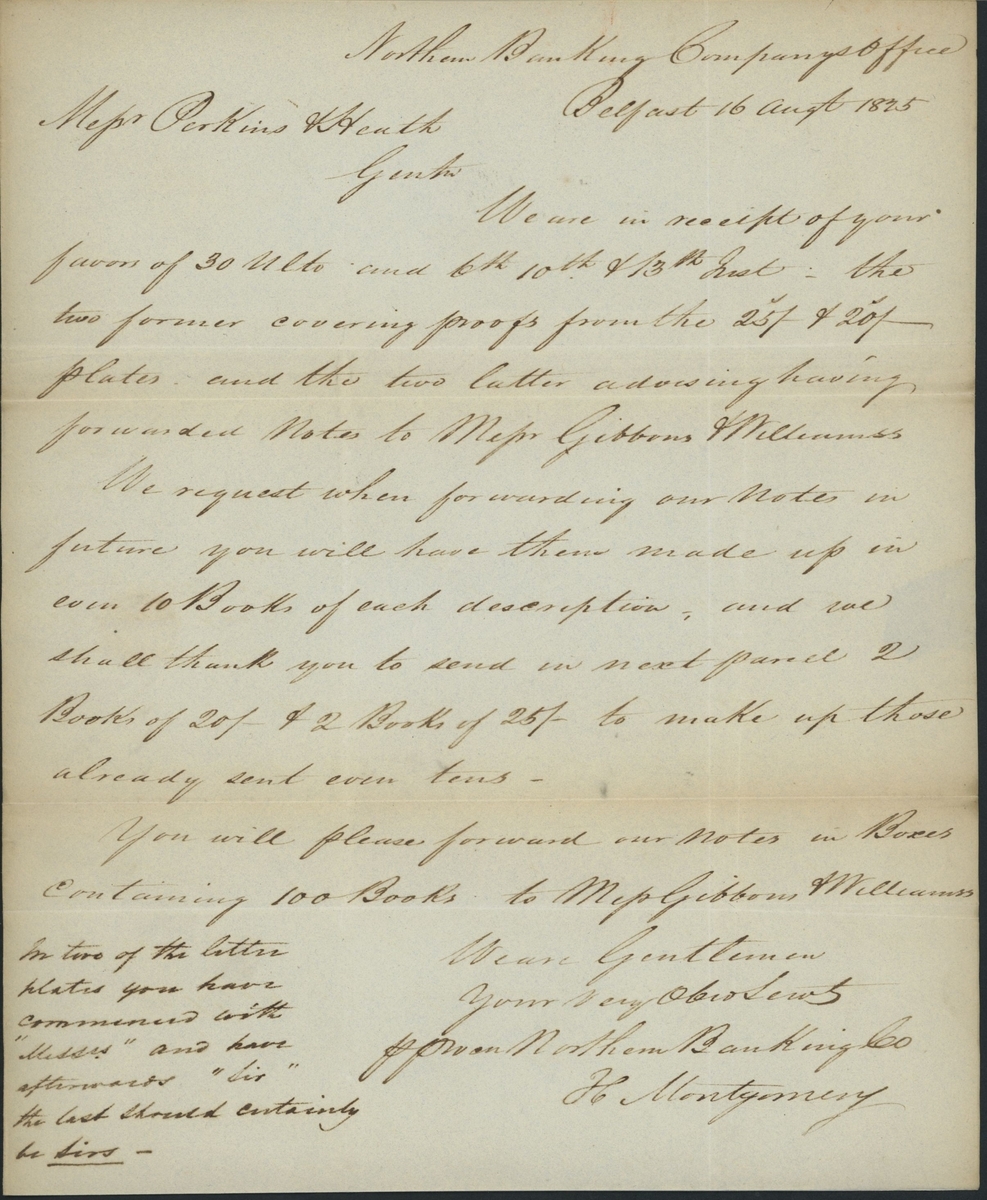 Northern Banking Companys Office
Belfast 16 Augt 1825
Messr Perkins & Heath
Gentn
We are in receipt of your
favors of 30 Ulto and 6th 10th & 13th Inst - the
two former covering proofs from the 25s/ & 20s/
plates and the two latter advising having
forwarded Notes to Messr Gibbons & Williamss
We request when forwarding our Notes in
future you will have them made up in
even 10 Books of each description, and we
shall thank you to send in next parcel 2
Books of 20/- & 2 Books of 25/- to make up those
already sent even tens -
You will please forward our Notes in Boxes
Containing 100 Books to Messr Gibbons & Williamss
We are Gentlemen
Your Very Obed Servt
Northern Banking Co
H Montgomery
In two of the letter
plates you have
commenced with
"Messrs" and have
afterwards "Sir"
the last should certainly
be Sirs -